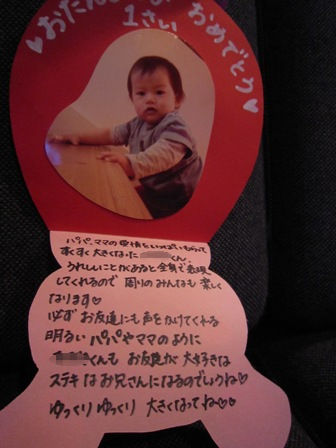 ♡おたんじょうび おめでとう♡
1さい
パパ、ママの愛情をいっぱいもらって
すくすく大きくなった くん。
うれしいことがあると全身で表現
してくれるので 周りのみんなも楽しく
なります♡
必ずお友達にも声をかけてくれる
明るいパパやママのように
くんも お友達が大好きな
ステキなお兄さんになるのでしょうね♡
ゆっくりゆっくり 大きくなってね♡♡